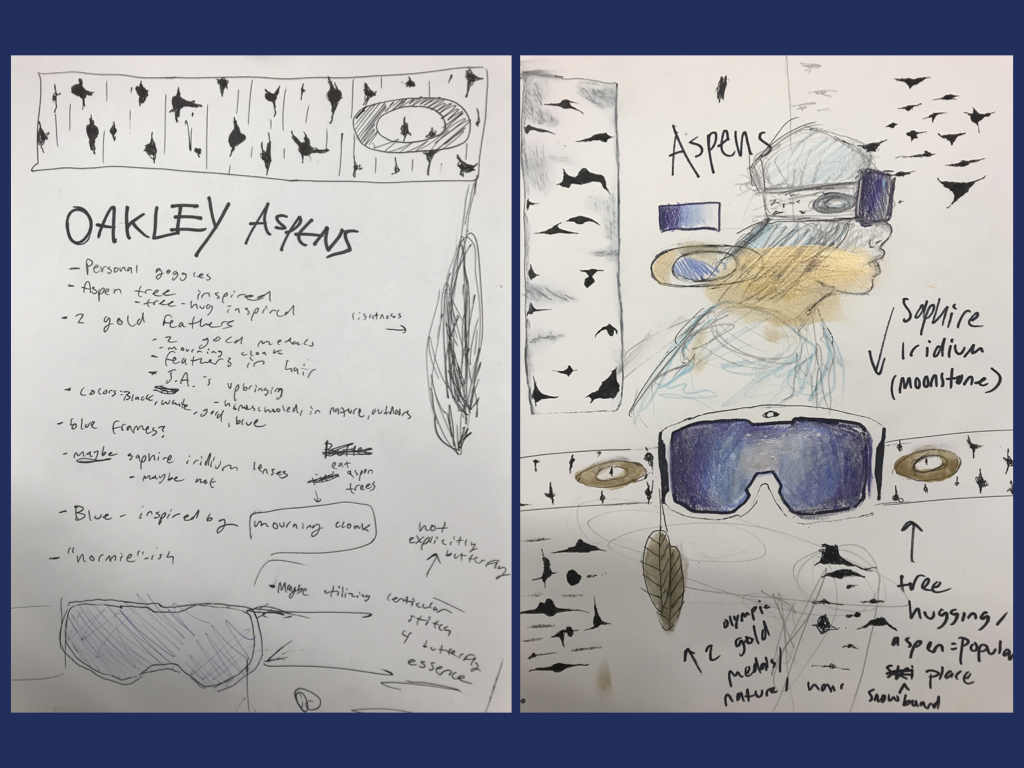 OAKLEY ASPENS
- Personal goggles
- Aspen tree inspired
- tree-hug inspired
- 2 gold feathers
- 2 gold medals
- mourning cloak
- feathers in hair
- J.A.'s upbringing
- homeschooled, in nature, outdoors
- colors: Black, white, gold, blue
- blue frames?
- maybe saphire iridium lenses
- maybe not
- Blue - inspired by mourning cloak
- "normie"-ish
lightness
eat
aspen
trees
not
explicitly
butterfly
- Maybe utilizing lenticular
stitch
4 butterfly
essence
Aspens
Saphire
Iridium
(moonstone)
olympic
2 gold
medals/
nature/
hair
tree
hugging/
aspen = popular
place
snowboard